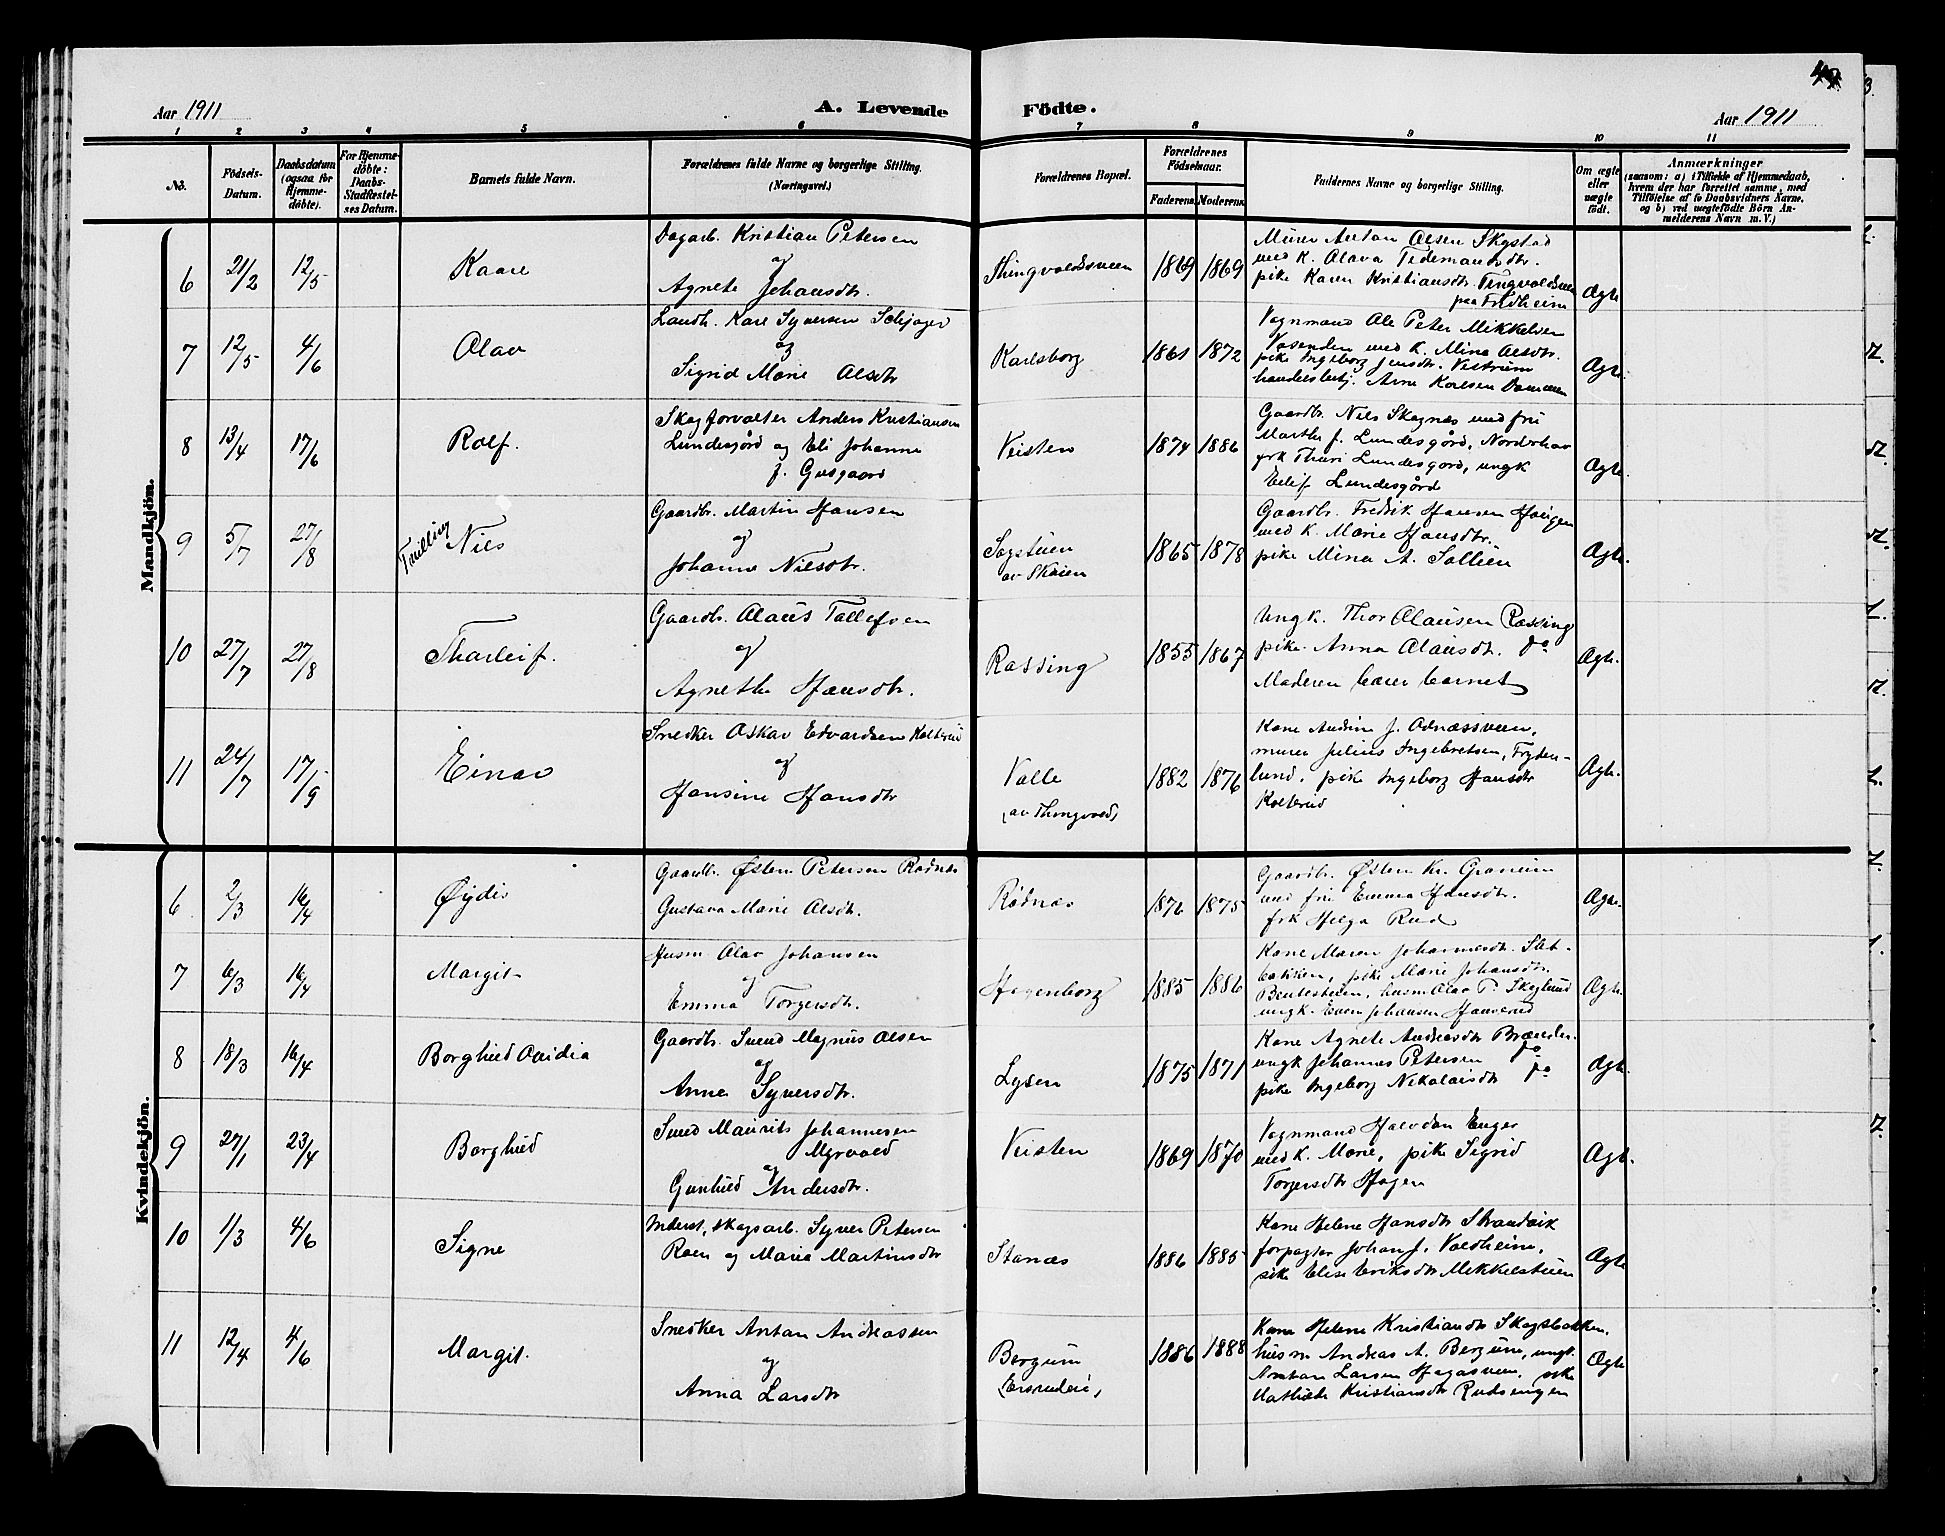 47.
Aar 1911
A. Levende Födte.
Aar 1911
1 2 3 4 5 6 7 8 9 10 11
No.
Födsels-Datum.
Daabsdatum (ogsaa for Hjemme-döbte).
For Hjemme-döbte: Daabs-Stadfæstel-ses Datum.
Barnets fulde Navn.
Forældrenes fulde Navne og borgerlige Stilling.
(Næringsvei.)
Forældrenes Bopæl.
Forældrenes Födselsaar.
Faderens. Moderens.
Faddernes Navne og borgerlig Stilling.
Om ægte eller uægte födt.
Anmærkninger
(saasom: a) i Tilfælde af Hjemmedaab,
hvem der har forrettet samme, med
Tilföielse af to Daabsvidners Navne.
og b) ved uægtefödte Börn An-
melderens Navn m. V.)
Mandkjön.
6 21/2 12/5 Kaare
Dagarb. Kristian Petersen
og
Agnete Johansdtr.
Thingvoldsveen 1869 1869
Murer Anton Olsen Skystad
med K. Olava Tidemansdtr.
pike Karen Kristiansdtr. Tingvoldsveen
paa Fridheim
Ægte
7 12/5 4/6 Olav
Landh. Kare Syversen Schjager
og
Sigrid Marie Olsdtr
Karlsborg 1861 1872
Vognmand Ole Peter Mikkelsen
Vosenden med K. Mina Olsdtr.
pike Ingeborg Jensdtr. Vestrum
handelsbetj. Arne Karlsen Dammen
Ægte.
8 13/4 17/6 Rolf.
Skogforvalter Anders Kristiansen
Lundesgård og Eli Johanne
f. Gusgaard
Veisten 1874 1886
Gaardbr. Nils Skognæs med fru
Marthe f. Lundesgård, Norderhov
frk Thuri Lundesgård, ungk
Eilif Lundesgård
Ægte
9 5/7 27/8 Tvilling Nils
Gaardbr. Martin Hansen
og
Johanne Nilsdtr.
Sagstuen
av Skøien
1865 1878
Gaardbr. Fredrik Hansen Haugen
med K. Marie Hansdtr.
pike Mina A. Sollien
Ægte.
10 27/7 27/8 Thorleif.
Gaardbr. Olaus Tollefsen
og
Agnethe Hansdtr.
Røssing 1855 1867
Ungk. Thor Olausen Røssing
pike Anna Olausdtr. do
Moderen bærer barnet
Ægte.
11 24/7 17/9 Einar
Snedker Oskar Edvardsen Kolterud
og
Hansine Hansdtr
Valle
(av Thingvold)
1882 1876
Kone Andrine J. Odnæssveen,
murer Julius Ingebretsen, Fryden-
lund, pike Ingeborg Hansdtr
Kolterud
Ægte.
Kvindekjön.
6 2/3 16/4 Øydis
Gaardbr. Østen Petersen Rødnæs
Gustava Marie Olsdtr.
Rødnæs 1876 1875
Gaardbr. Østen Kr. Granum
med fru Emma Hansdtr.
frk Helga Rud
Ægte.
7 6/3 16/4 Margit
Husm Olav Johansen
og
Emma Torgersdtr.
Hagenborg 1885 1886
Kone Maren Johannesdtr. Slet-
bakken, pike Marie Johansdtr.
Bentestuen, husm Olav P. Skoglund
ungk. Even Johansen Hanverud
Ægte.
8 18/3 16/4 Borghild Ovidia
Gaardbr. Svend Magnus Olsen
og
Anne Syversdtr.
Lysen 1875 1871
Kone Agnete Andreasdtr Brænden
ungk Johannes Petersen do
pike Ingeborg Nikolaisdtr do
Ægte.
9 27/1 23/4 Borghild
Smed Maurits Johannesen
Myrvold
og
Gunhild Andersdtr.
Veisten 1869 1870
Vognmand Halvdan Enger
med K. Marie, pike Sigrid
Torgersdtr Hagen
Ægte.
10 1/3 4/6 Signe
Inderst, skogsarb. Syver Petersen
Roen og Maria Martinsdtr
Stanæs 1886 1885
Kone Helene Hansdtr Strandvik
forpagter Johan J. Voldheim,
pike Elise Eriksdtr Mikkelstuen
Ægte
11 12/4 4/6 Margit.
Snedker Anton Andreassen
og
Anna Larsdtr
Bergum
1886 1888
Kone Helene Kristiansdtr Skogsbakken,
husm Andreas A. Bergum, ungk.
Larsen Hagasveen, pike
Mathilde Kristiansdtr Rudsengen
Ægte